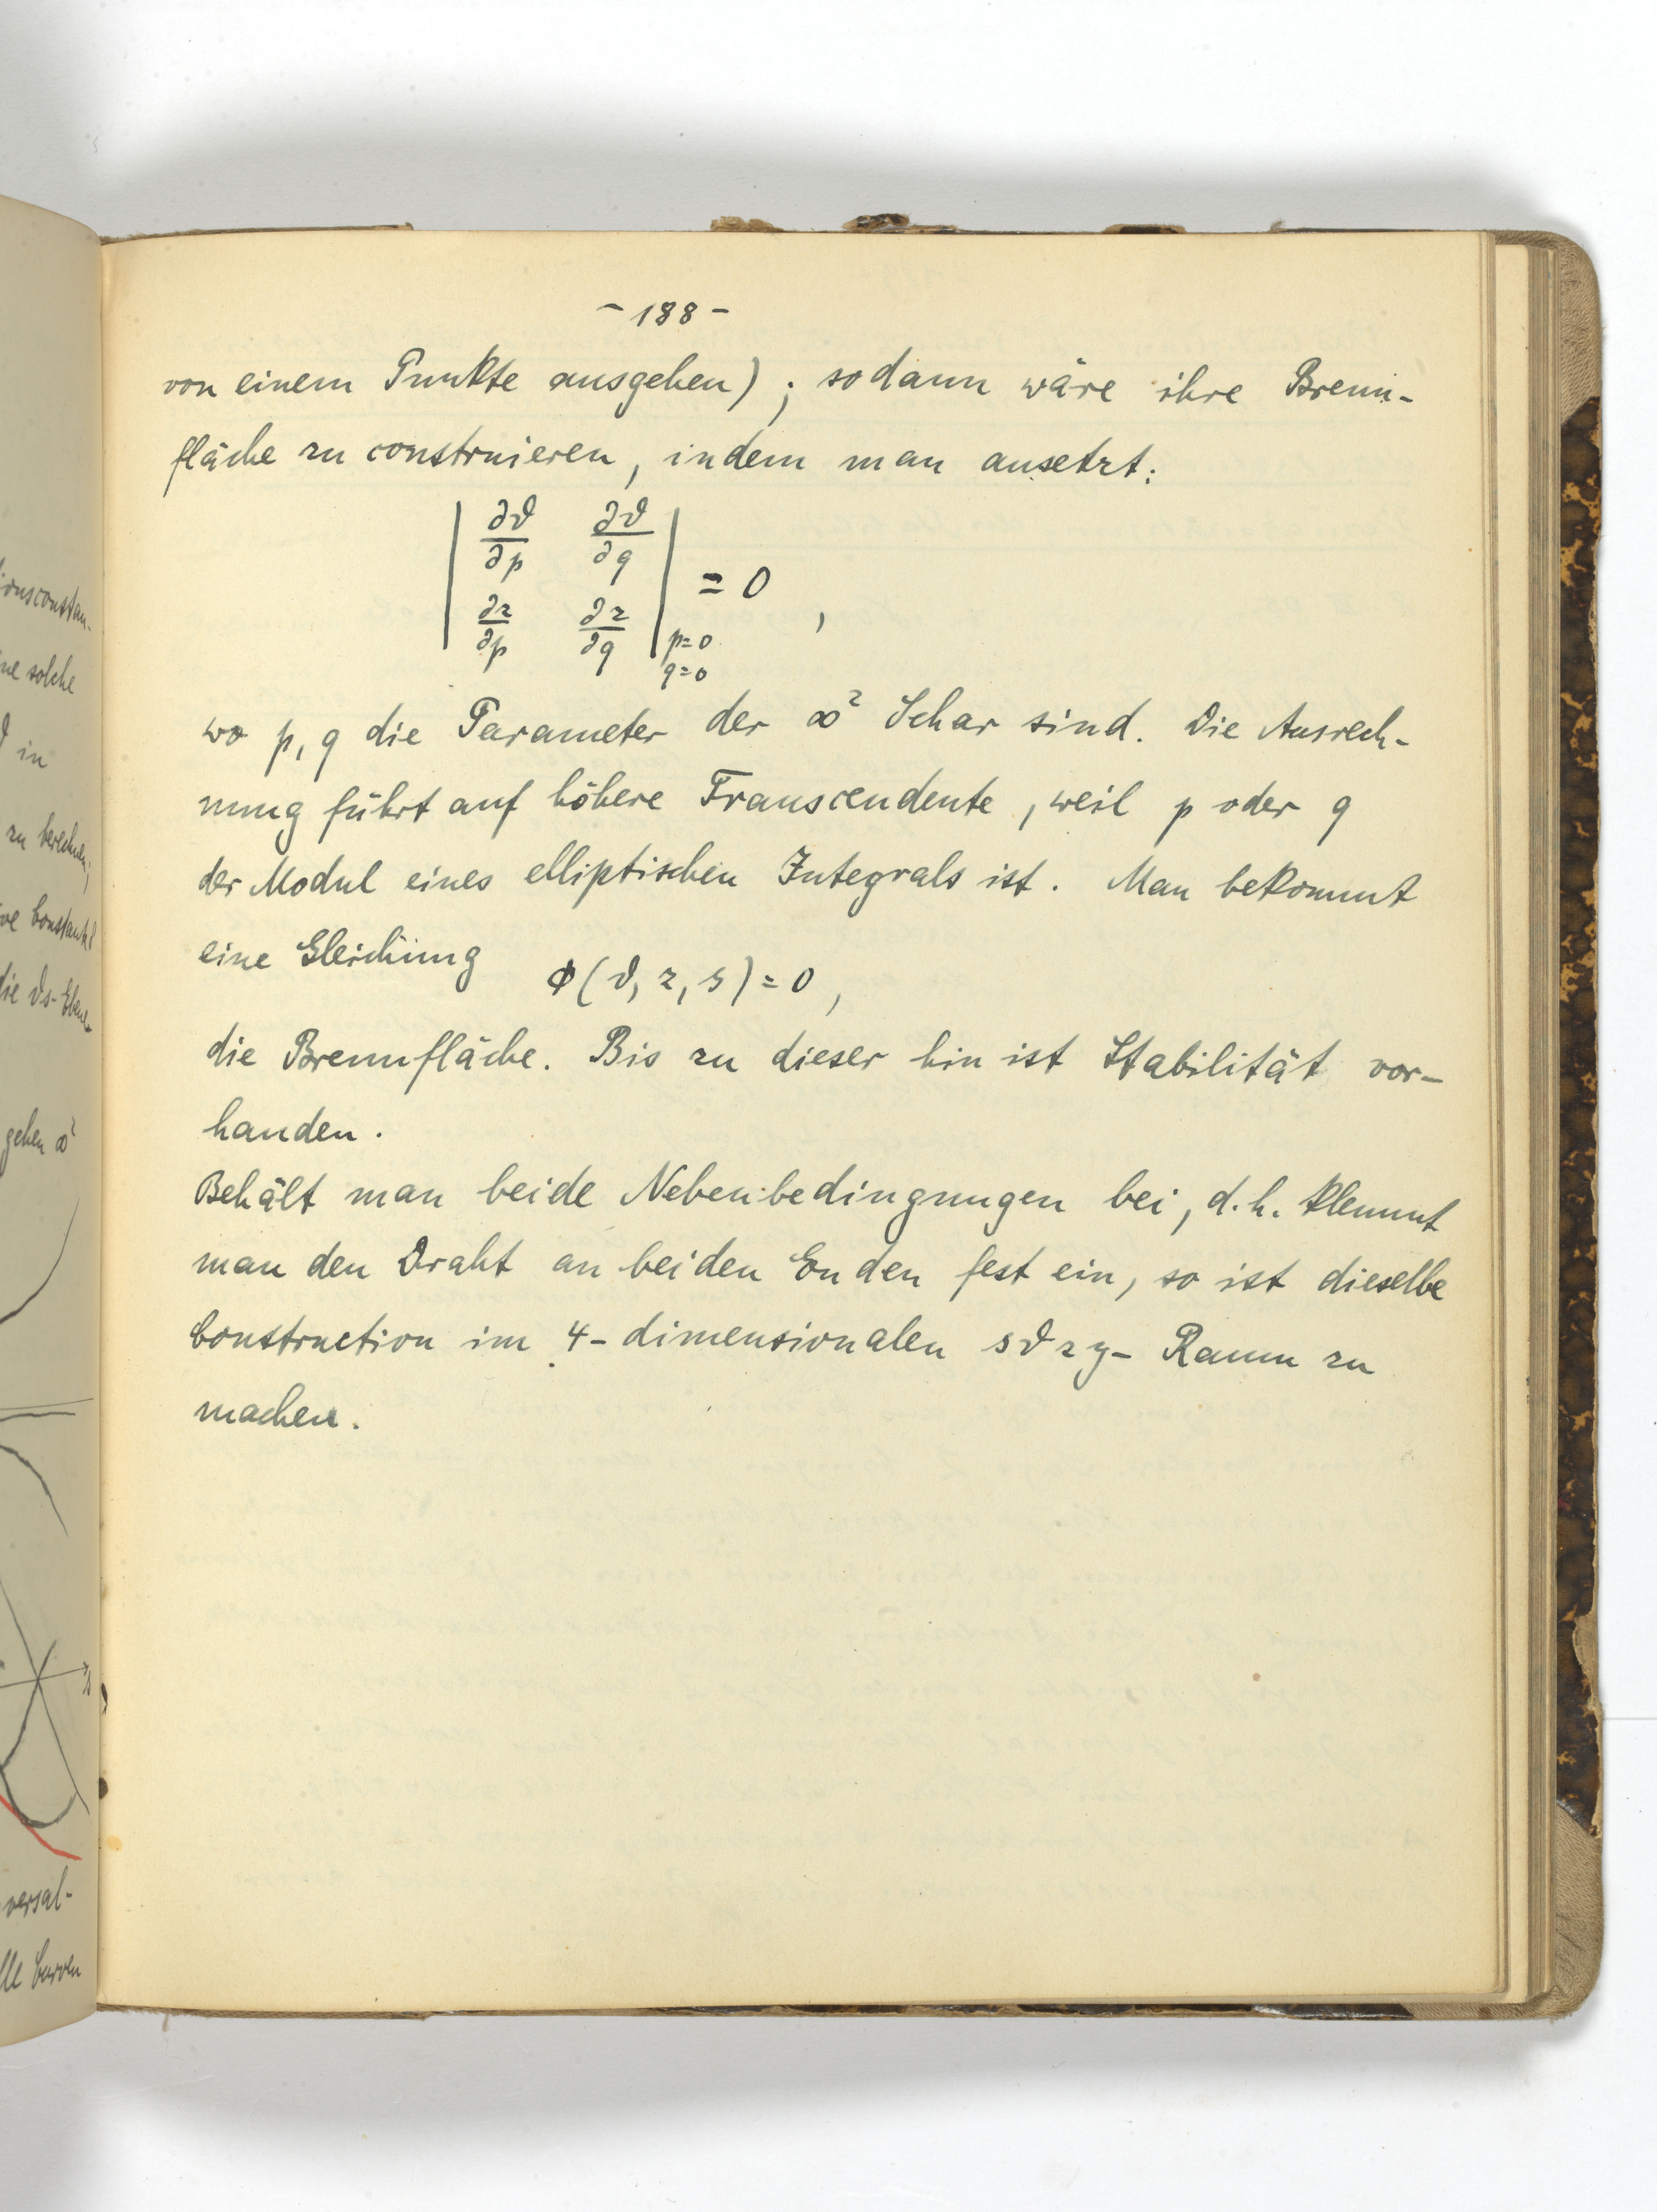 - 188 -
von einem Punkte ausgehen); sodann wäre ihre Brenn-
fläche zu construieren, indem man ansetzt:
| ∂ϑ/∂p ∂ϑ/∂q |
| ∂z/∂p ∂z/∂q | p=0 q=0 = 0 ,
wo p, q die Parameter der ∞² Schar sind. Die Ausrech-
nung führt auf höhere Transcendente, weil p oder q
der Modul eines elliptischen Integrals ist. Man bekommt
eine Gleichung Φ(ϑ, z, s) = 0 ,
die Brennfläche. Bis zu dieser hin ist Stabilität vor-
handen.
Behält man beide Nebenbedingungen bei, d.h. klemmt
man den Draht an beiden Enden fest ein, so ist dieselbe
Construction im 4-dimensionalen sϑzy- Raum zu
machen.
ne solche
ϑ in
zu berechnen;
ve Constante
die ϑs-Ebene
gehen ∞²
versal-
lle Curven